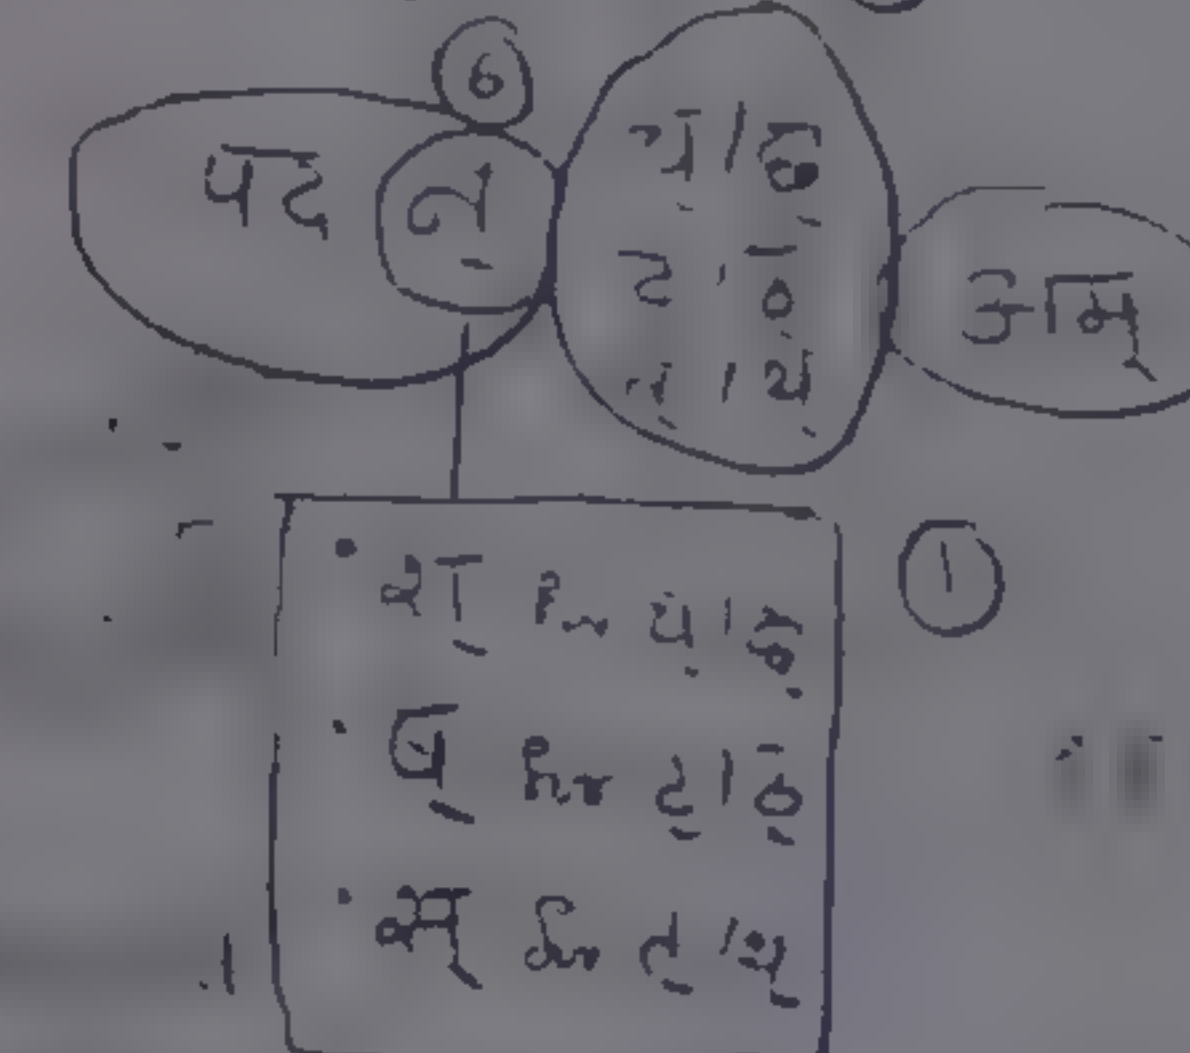 6
पद न् च्/छ् अम्
ट/ठ
त्/थ्
• श् for च्/छ्
1
• ष् for ट्/ठ्
• स् for त्/थ्